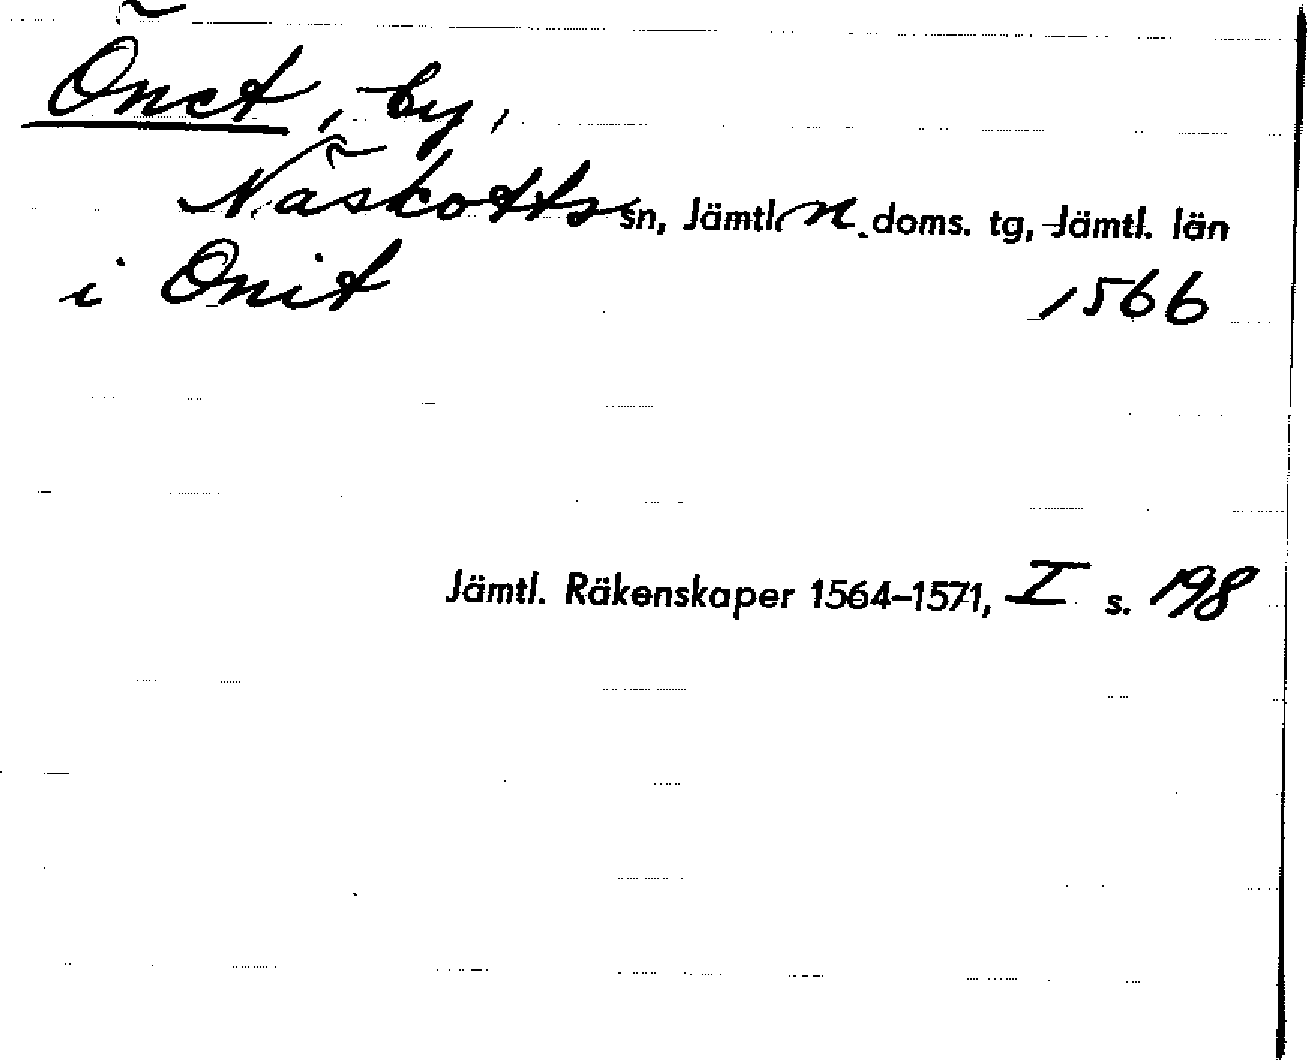 Önet, by,
Näskotts sn, Jämtl. n. doms. tg, Jämtl. län
i Onit 1566
Jämtl. Räkenskaper 1564–1571, I s. 198